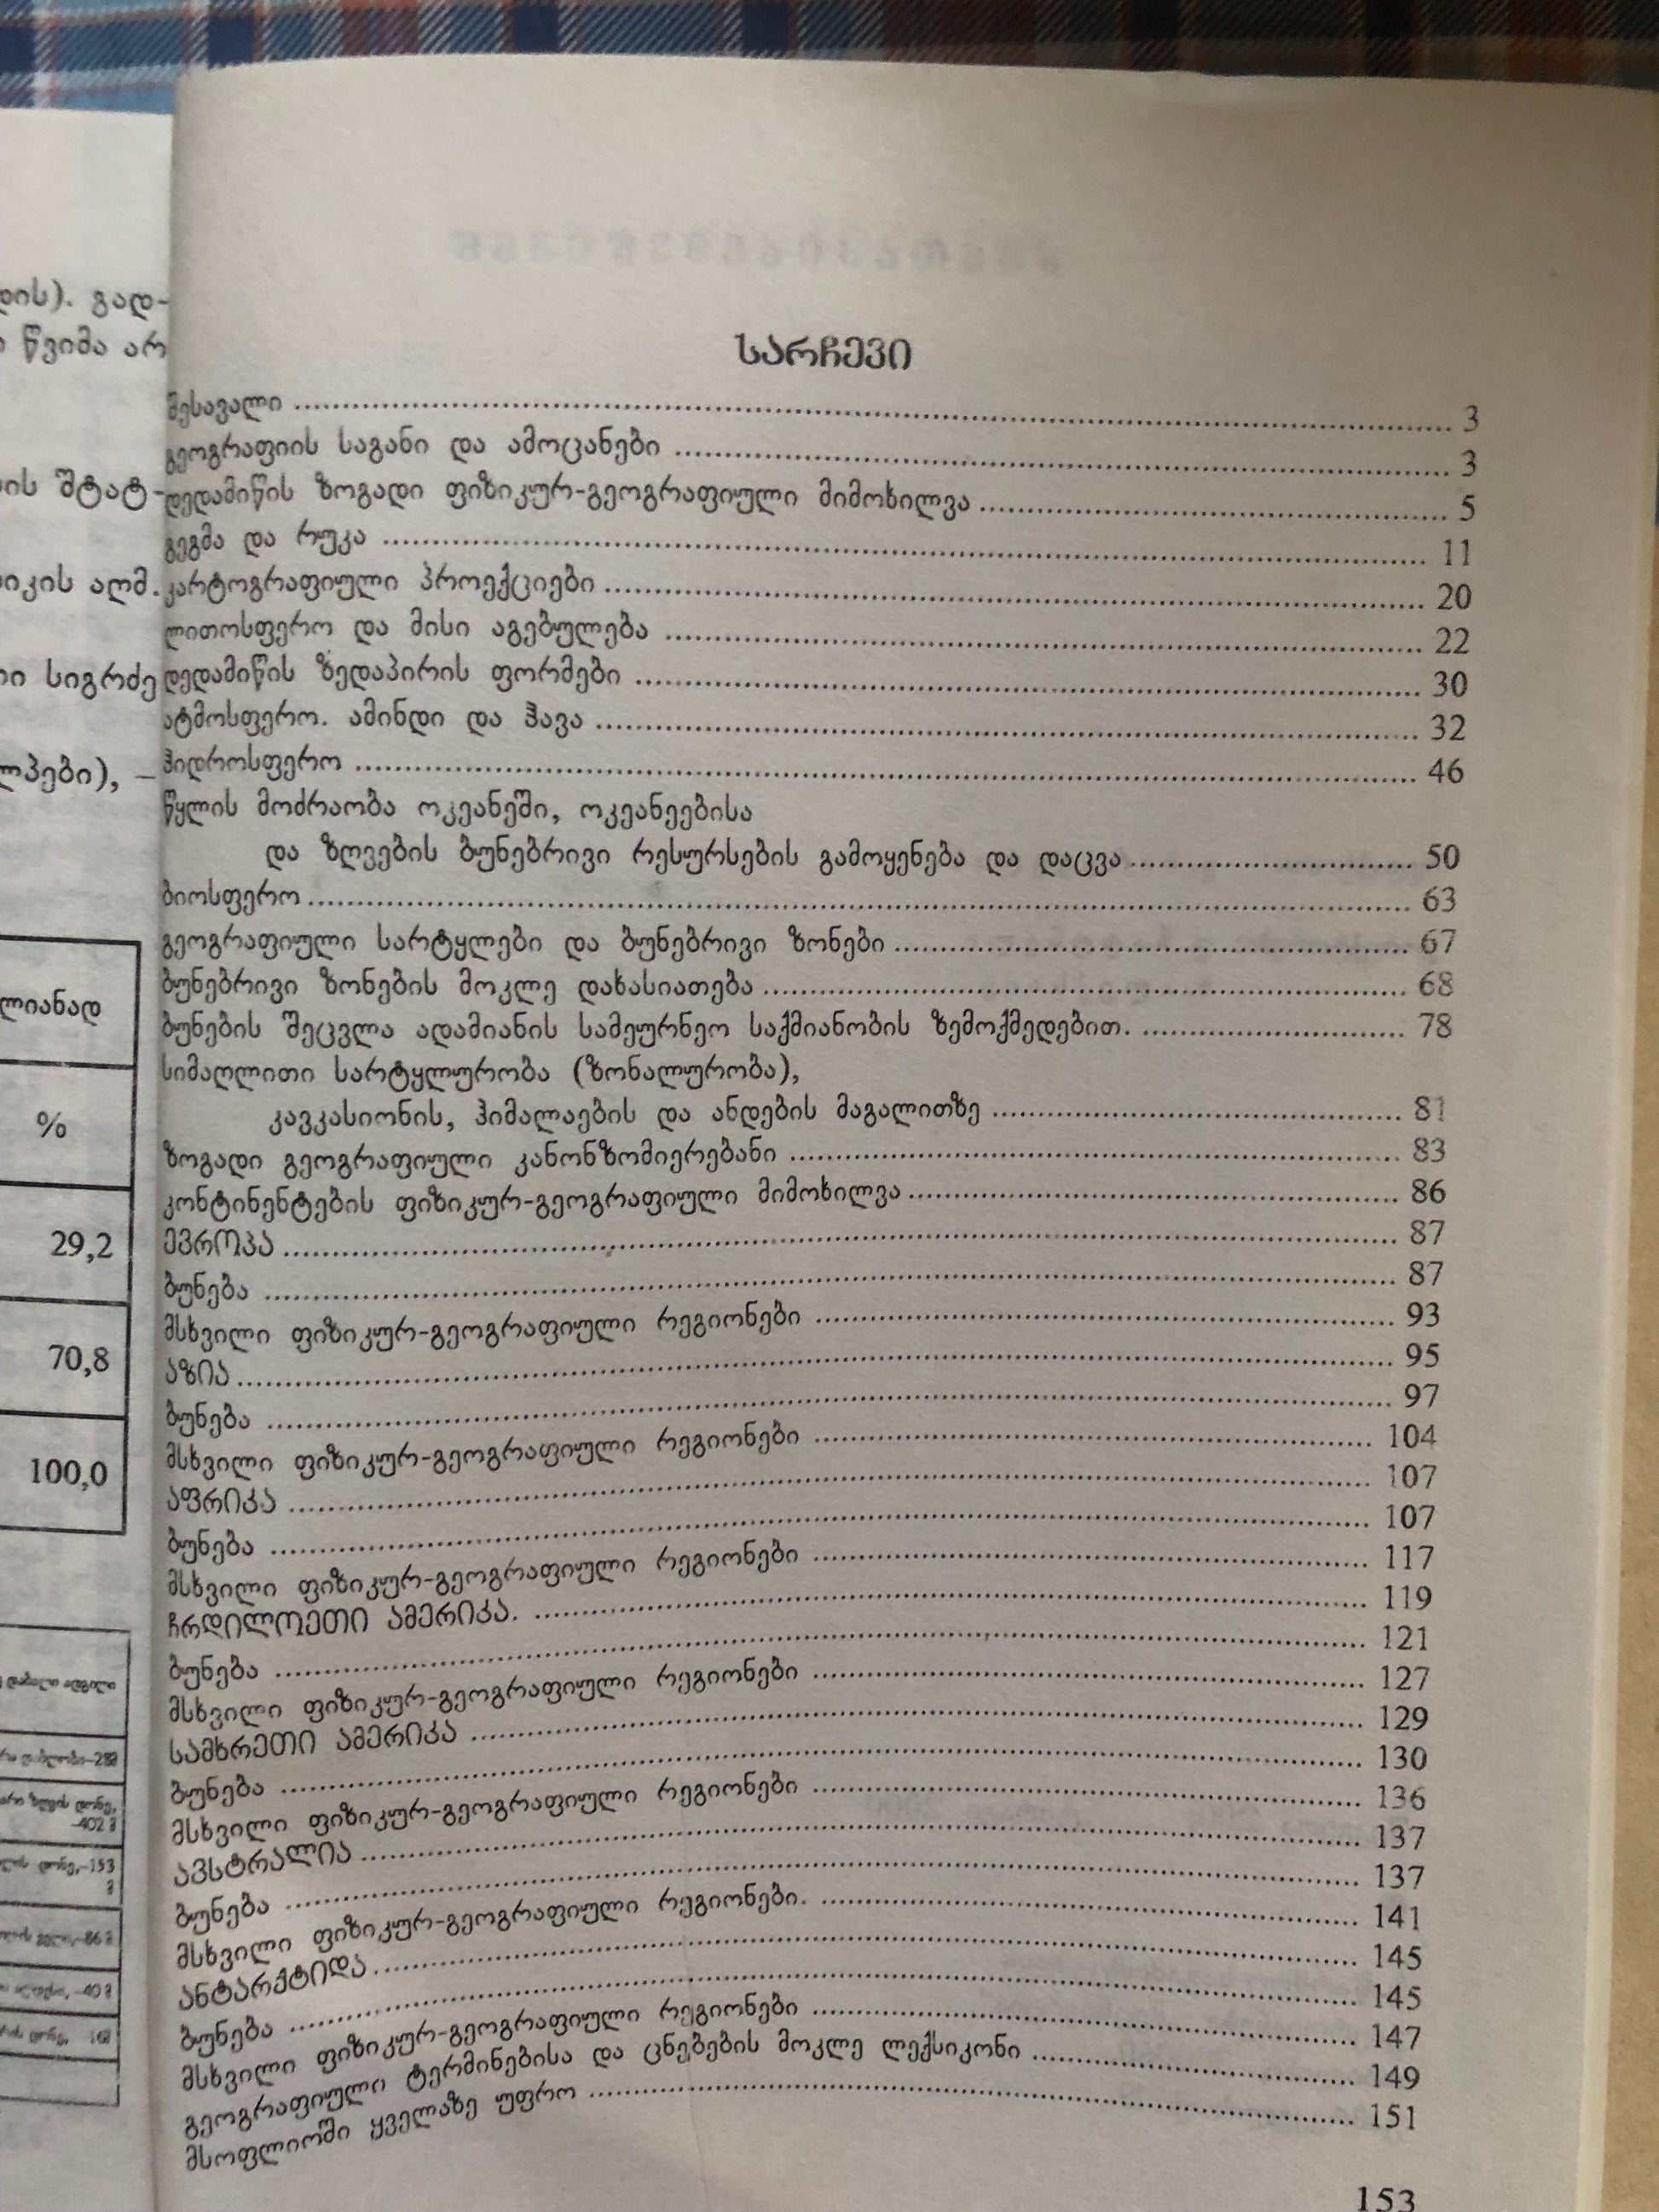 გად-
წვიმა არ
შტატ-
აღმ.
სიგრძე
%
29,2
70,8
100,0
სარჩევი
შესავალი ........ 3
გეოგრაფიის საგანი და ამოცანები ........ 3
დედამიწის ზოგადი ფიზიკურ-გეოგრაფიული მიმოხილვა ........ 5
გეგმა და რუკა ........ 11
კარტოგრაფიული პროექციები ........ 20
ლითოსფერო და მისი აგებულება ........ 22
დედამიწის ზედაპირის ფორმები ........ 30
ატმოსფერო. ამინდი და ჰავა ........ 32
ჰიდროსფერო ........ 46
წყლის მოძრაობა ოკეანეში, ოკეანეებისა
და ზღვების ბუნებრივი რესურსების გამოყენება და დაცვა ........ 50
ბიოსფერო ........ 63
გეოგრაფიული სარტყლები და ბუნებრივი ზონები ........ 67
ბუნებრივი ზონების მოკლე დახასიათება ........ 68
ბუნების შეცვლა ადამიანის სამეურნეო საქმიანობის ზემოქმედებით. ........ 78
სიმაღლითი სარტყლურობა (ზონალურობა),
კავკასიონის, ჰიმალაების და ანდების მაგალითზე ........ 81
ზოგადი გეოგრაფიული კანონზომიერებანი ........ 83
კონტინენტების ფიზიკურ-გეოგრაფიული მიმოხილვა ........ 86
ევროპა ........ 87
ბუნება ........ 87
მსხვილი ფიზიკურ-გეოგრაფიული რეგიონები ........ 93
აზია ........ 95
ბუნება ........ 97
მსხვილი ფიზიკურ-გეოგრაფიული რეგიონები ........ 104
აფრიკა ........ 107
ბუნება ........ 107
მსხვილი ფიზიკურ-გეოგრაფიული რეგიონები ........ 117
ჩრდილოეთი ამერიკა. ........ 119
ბუნება ........ 121
მსხვილი ფიზიკურ-გეოგრაფიული რეგიონები ........ 127
სამხრეთი ამერიკა ........ 129
ბუნება ........ 130
მსხვილი ფიზიკურ-გეოგრაფიული რეგიონები ........ 136
ავსტრალია ........ 137
ბუნება ........ 137
მსხვილი ფიზიკურ-გეოგრაფიული რეგიონები. ........ 141
ანტარქტიდა ........ 145
ბუნება ........ 145
მსხვილი ფიზიკურ-გეოგრაფიული რეგიონები ........ 147
გეოგრაფიული ტერმინებისა და ცნებების მოკლე ლექსიკონი ........ 149
მსოფლიოში ყველაზე უფრო ........ 151
153